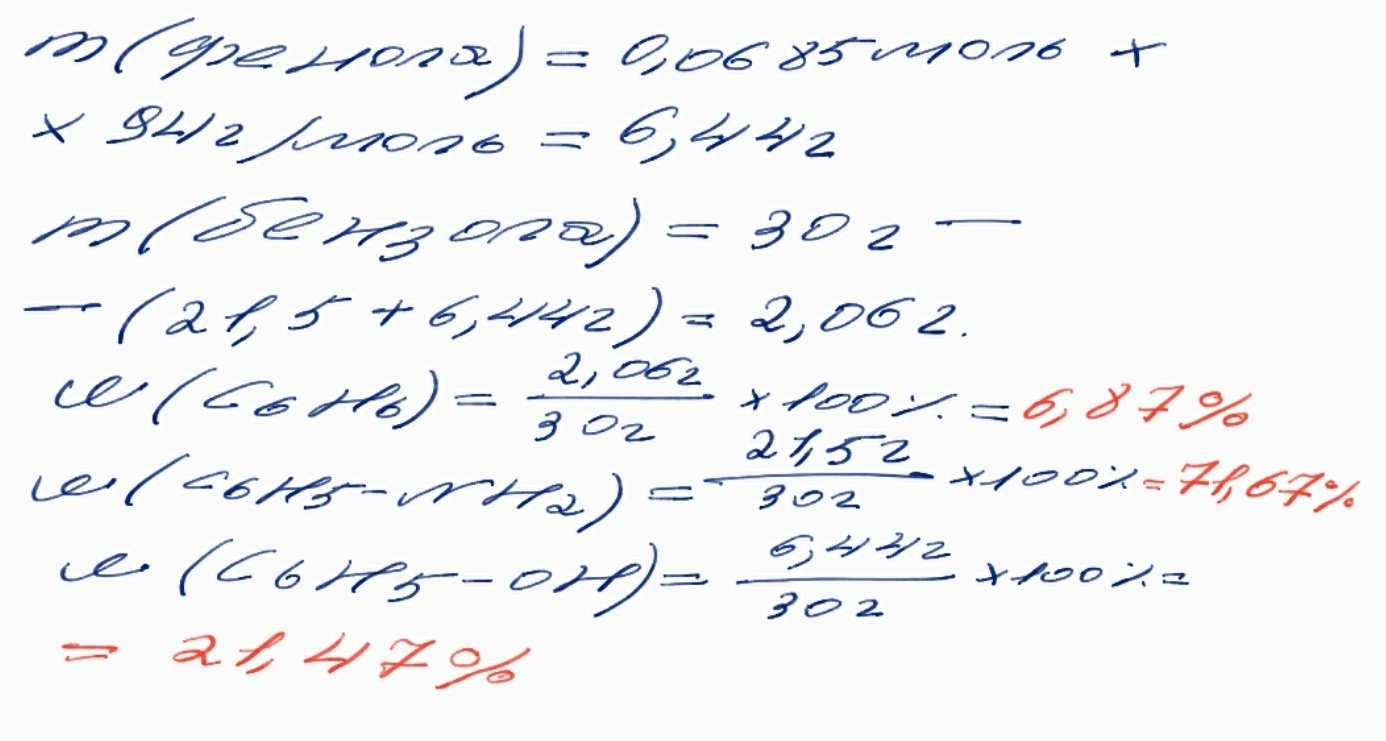 m(фенола) = 0,0685 моль ×
× 94 г/моль = 6,44 г
m(бензола) = 30 г —
— (21,5 + 6,44 г) = 2,06 г.
w(C6H6) = 2,06г / 30г × 100% = 6,87%
w(C6H5-NH2) = 21,5г / 30г × 100% = 71,67%
w(C6H5-OH) = 6,44г / 30г × 100% =
= 21,47%